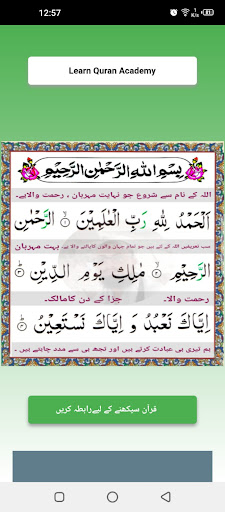 12:57
Learn Quran Academy
بِسْمِ اللهِ الرَّحْمٰنِ الرَّحِيْمِ
اللہ کے نام سے شروع جو نہایت مہربان ، رحمت والاہے۔
اَلْحَمْدُ لِلّٰهِ رَبِّ الْعٰلَمِيْنَ ۝ الرَّحْمٰنِ
سب تعریفیں اللہ کے لئے ہیں جو تمام جہان والوں کاپالنے والاہے۔ بہت مہربان
الرَّحِيْمِ ۝ مٰلِكِ يَوْمِ الدِّيْنِ ۝
رحمت والا۔ جزا کے دن کامالک۔
اِيَّاكَ نَعْبُدُ وَ اِيَّاكَ نَسْتَعِيْنُ ۝
ہم تیری ہی عبادت کرتے ہیں اور تجھ ہی سے مدد چاہتے ہیں۔
قرآن سیکھنے کے لیےرابطہ کریں